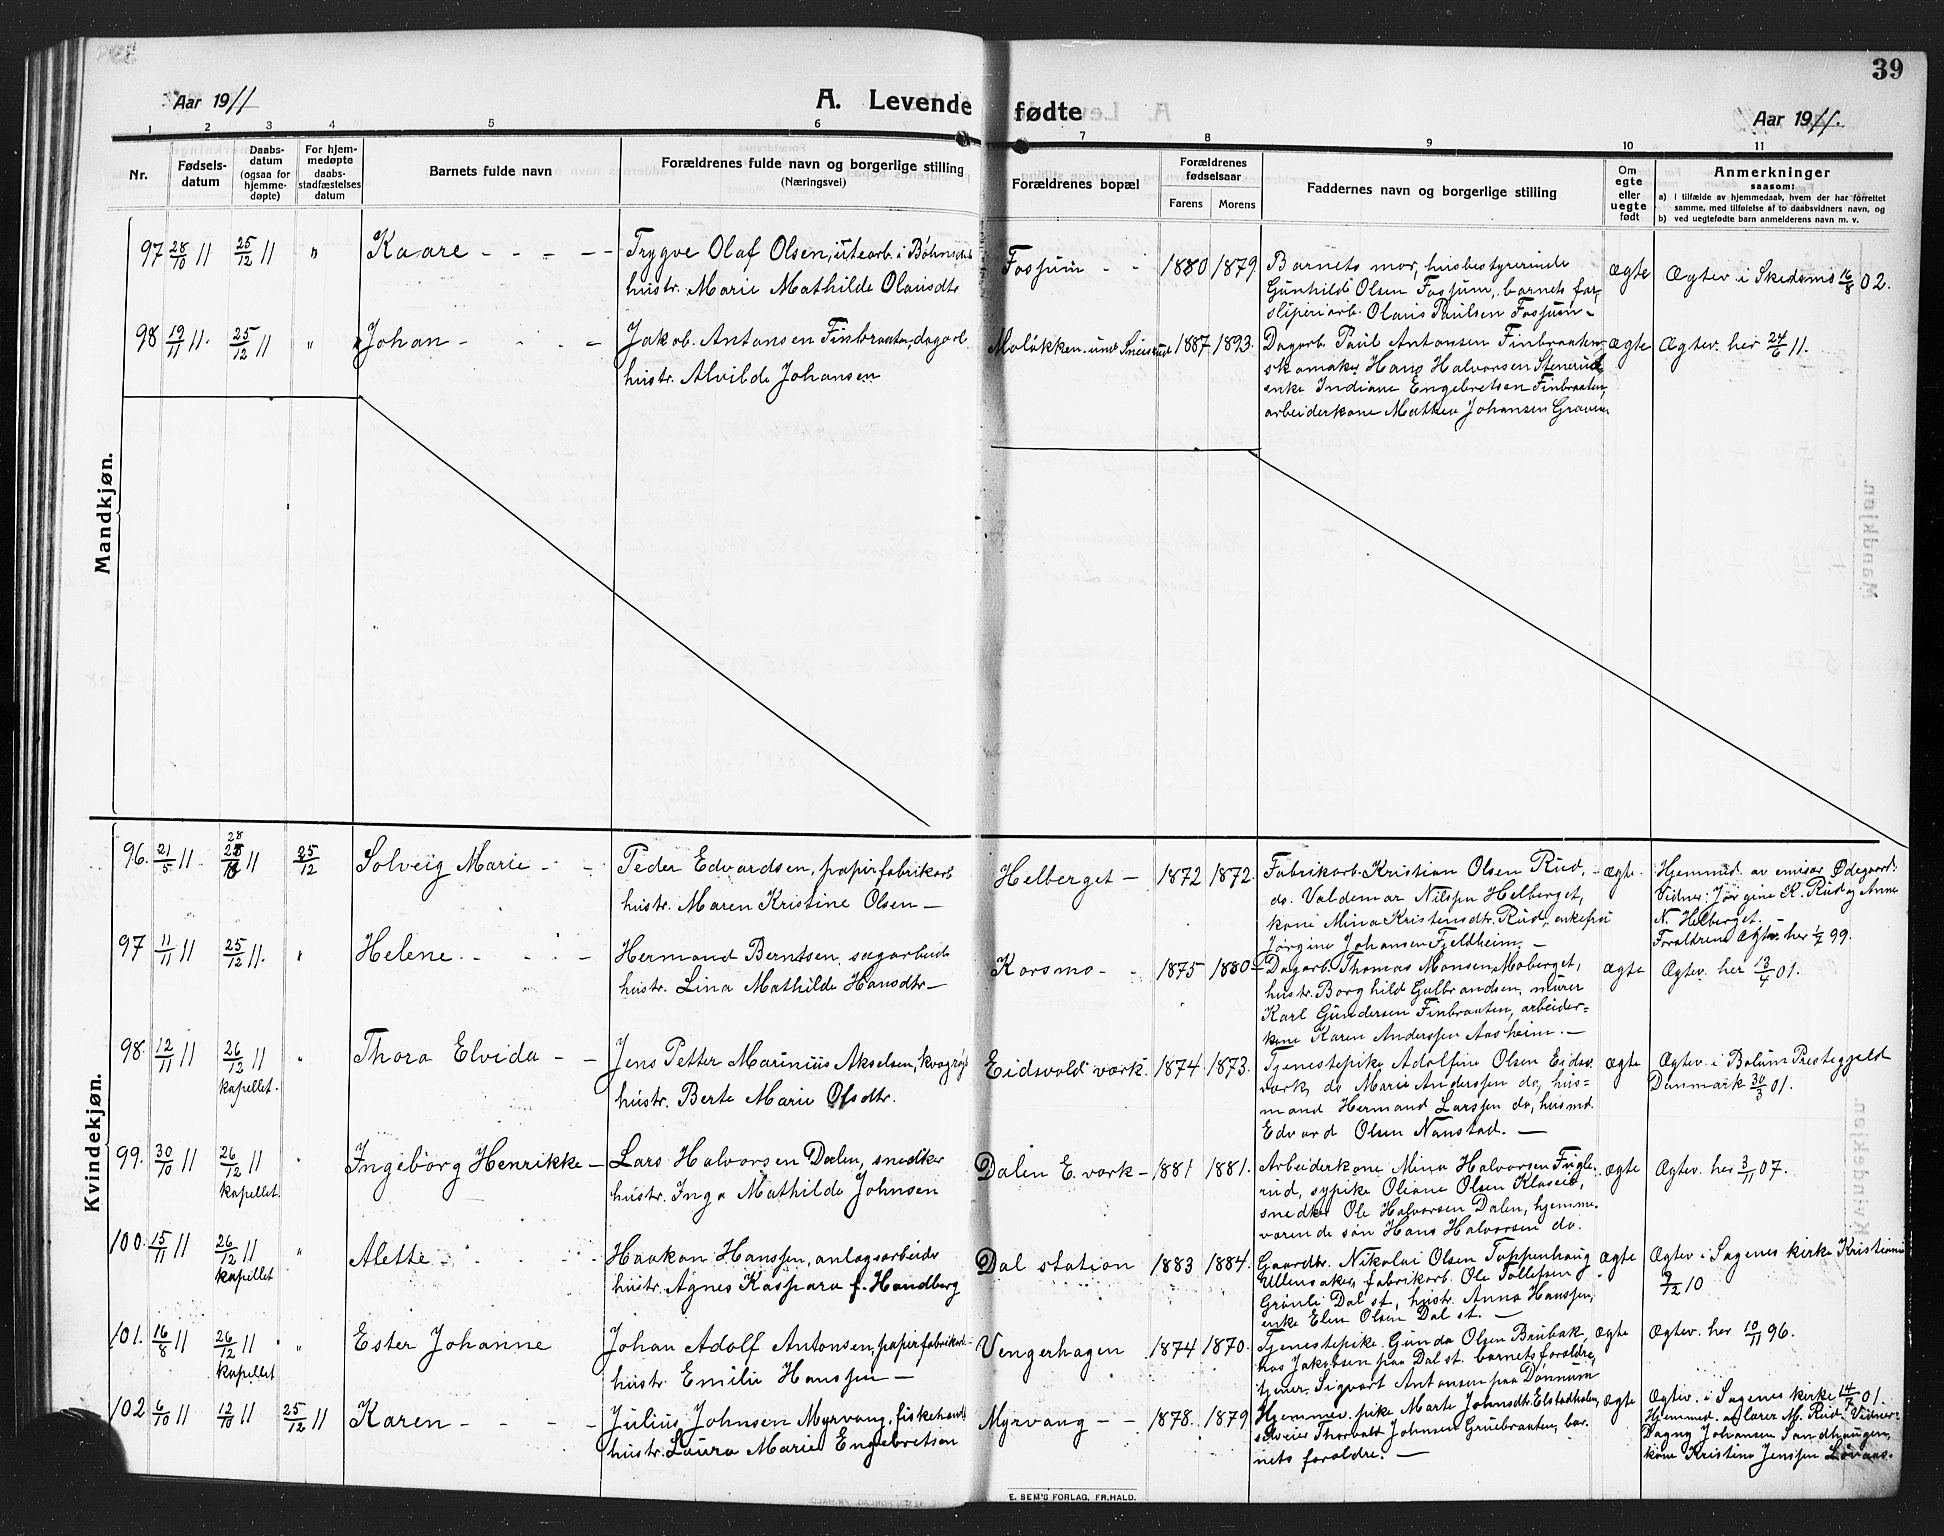 39
Aar 1911
A. Levende fødte
Aar 1911.
1 2 3 4 5 6 7 8 9 10 11
Nr.
Fødsels-
datum
Daabs-
datum
(ogsaa for
hjemme-
døpte)
For hjem-
medøpte
daabs-
stadfæstelses
datum
Barnets fulde navn
Forældrenes fulde navn og borgerlige stilling
(Næringsvei)
Forældrenes bopæl
Forældrenes
fødselsaar
Farens Morens
Faddernes navn og borgerlige stilling
Om
egte
eller
uegte
født
Anmerkninger
saasom:
a) i tilfælde av hjemmedaab, hvem der har forrettet
samme, med tilføielse af to daabsvidners navn, og
b) ved uegtefødte barn anmelderens navn m. v.
Mandkjøn.
97 28/10 11 25/12 11 " Kaare - - - -
Trygve Olaf Olsen, utearb. i Bøhnsdal
hustr. Marie Mathilde Olausdtr
Fossum - - 1880 1879.
Barnets mor, husbestyrerinde
Gunhild Olsen Fossum, barnets far,
sliperiarb. Olaus Paulsen Fossum -
ægte Ægtev. i Skedsmo 16/8 02.
98 19/11 11. 25/12 11 " Johan - - - -
Jakob Antonsen Finbraaten, dagarb.
hustr. Alvilde Johansen
Moløkken 1887 1893.
Dagarb. Paul Antonsen Finbraaten
skomaker Hans Halvorsen Stenerud,
enke Indiane Engebretsen Finbraaten,
arbeiderkone Mathea Johansen
ægte Ægtev. her 24/6 11.
Kvindekjøn.
96. 21/5 11. 28 11 25/12 Solveig Marie - -
Peder Edvardsen, papirfabrikarb
hustr. Maren Kristine Olsen -
Helberget - 1872 1872.
Fabrikarb. Kristian Olsen Rud,
do. Valdemar Nilsen Helberget,
kone Mina Kristensdtr. Rud, enkefru
Jørgine Johansen Fjeldheim. -
ægte. Hjemmed. av emisær Ødegaard.
Vidner: Jørgine K. Rud og Anne
N. Helberget. -
Forældrene Ægtev. her 99.
97 11/11 11 25/12 11. " Helene. - - - -
Hermand Berntsen, sagarbeider
hustr. Lina Mathilde Hansdtr -
Korsmo - - 1875 1880 -
Dagarb. Thomas Monsen Moberget,
hustr. Borghild Gulbrandsen, murer
Karl Gundersen Finbraaten, arbeider-
kone Karen Anderssen Aasheim. -
ægte Ægtev. her 13/4 01.
98. 12/11 11 26/12 11 kapellet. " Thora Elvida - -
Jens Petter Marinius Akselsen,
hustr. Berte Marie Olsdtr.
Eidsvold værk. 1874 1873.
Tjenestepike Adolfine Olsen Eidsv.
værk, do Marie Anderssen do, hus-
mand Hermand Larssen do, husmd.
Edvard Olsen Nanstad. -
ægte Ægtev. i Prestegjeld
Danmark 30/3 01.
99. 30/10 11 26/12 11 kapellet. " Ingeborg Henrikke -
Lars Halvorsen Dalen, snedker
hustr. Inga Mathilde Johnsen
Dalen E. værk - 1881 1881.
Arbeiderkone Mina Halvorsen Fugle-
rud, sypike Oliane Olsen
snedker Ole Halvorsen Dalen, hjemme-
værende søn Hans Halvorsen do.
ægte Ægtev. her 3/11 07.
100. 15/11 11 26/12 11 kapellet " Alette - - - -
Haakon Hanssen, anlægsarbeider
hustr. Agnes Kaspara f. Handberg
Dal station 1883 1884.
Gaardbr. Nikolai Olsen Toppenhaug
Ullensaker, fabrikarb. Ole Tollefsen
Grønli Dal st., hustr. Anna Hanssen,
enke Elen Olsen Dal st. -
ægte Ægtev. i Sagenes kirke Kristiania
9/12 10
101. 16/8 11 26/12 11 kapellet " Ester Johanne
Johan Adolf Antonsen, papirfabrikarb.
hustr. Emilie Hanssen -
Vengerhagen 1874 1870.
Tjenestepike Gunda Olsen Brubak,
Jakobsen paa Dal st. barnets forældre,
tjener Sigvart Antonsen paa Dønnum
ægte Ægtev. her 10/11 96.
102 6/10 11 12/10 11 25/12 11 Karen - - - -
Julius Johnsen Myrvang, fiskehandl.
hustr. Laura Marie Engebretsen
Myrvang - - 1878. 1879
Hjemmev. pike Marte Johnsdtr. Elstadholen,
selveier Thorvald Johnsen Gruebraaten, bar-
nets forældre. -
ægte Ægtev. i Sagenes kirke 14/7 01.
Hjemmed. av lærer M. Rud. Vidner:
Dagny Johansen Sandhaugen,
kone Kristine Jenssen Løvaas.
E. SEM'S FORLAG, FR.HALD.